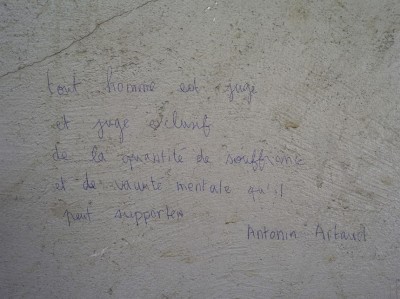 tout homme est juge
et juge exclusif
de la quantité de souffrance
et de vacuité mentale qu'il
peut supporter
Antonin Artaud